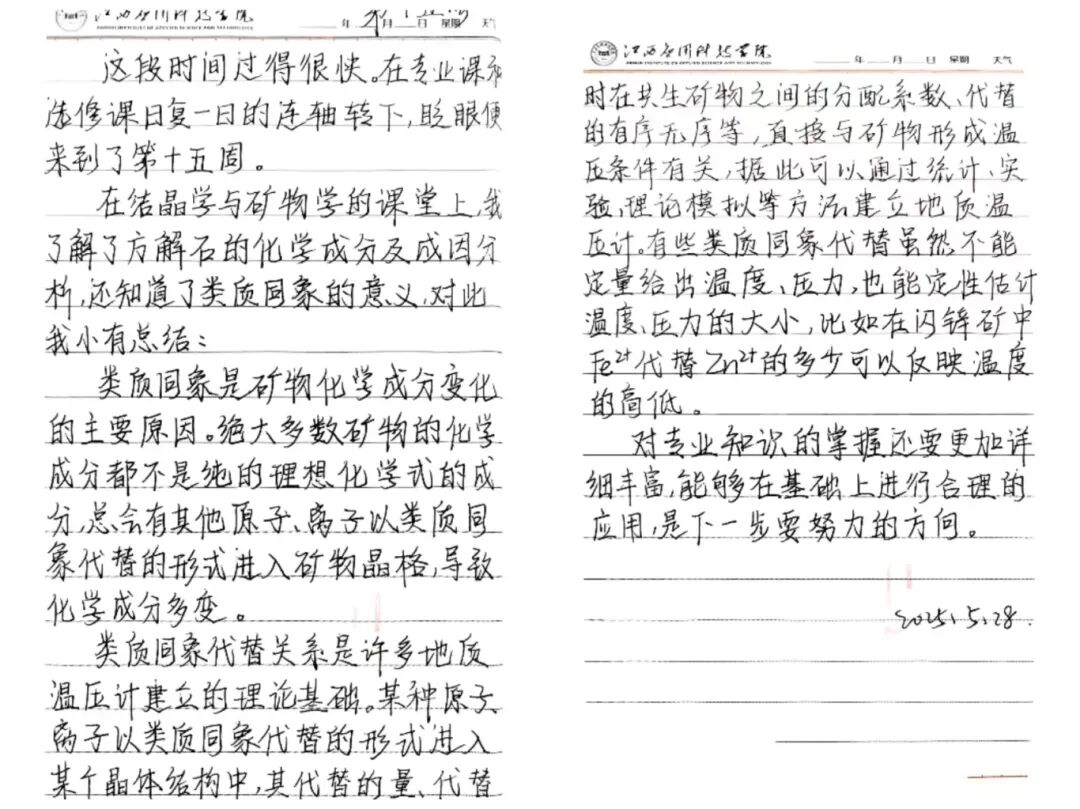 江西应用科技学院
JIANGXI INSTITUTE OF APPLIED SCIENCE AND TECHNOLOGY
年 月 日 星期 天气
第十五周
这段时间过得很快。在专业课和
选修课日复一日的连轴转下,眨眼便
来到了第十五周。
在结晶学与矿物学的课堂上,我
了解了方解石的化学成分及成因分
析,还知道了类质同象的意义,对此
我小有总结:
类质同象是矿物化学成分变化
的主要原因。绝大多数矿物的化学
成分都不是纯的理想化学式的成
分,总会有其他原子、离子以类质同
象代替的形式进入矿物晶格,导致
化学成分多变。
类质同象代替关系是许多地质
温压计建立的理论基础。某种原子、
离子以类质同象代替的形式进入
某个晶体结构中,其代替的量、代替
江西应用科技学院
JIANGXI INSTITUTE OF APPLIED SCIENCE AND TECHNOLOGY
年 月 日 星期 天气
时在共生矿物之间的分配系数、代替
的有序无序等,直接与矿物形成温
压条件有关,据此可以通过统计、实
验,理论模拟等方法建立地质温
压计。有些类质同象代替虽然不能
定量给出温度、压力,也能定性估计
温度、压力的大小,比如在闪锌矿中
Fe²⁺代替Zn²⁺的多少可以反映温度
的高低。
对专业知识的掌握还要更加详
细丰富,能够在基础上进行合理的
应用,是下一步要努力的方向。
2025.5.28.